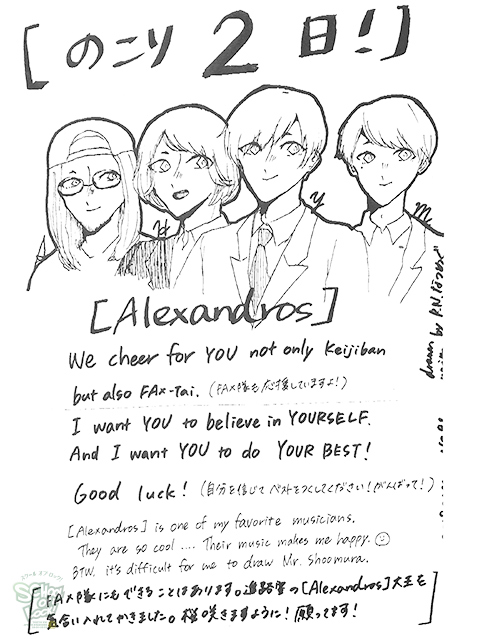 [のこり2日!]
H
Y
M
[Alexandros]
We cheer for YOU not only Keijiban
but also FAX-Tai. (FAX隊も応援していますよ!)
I want YOU to believe in YOURSELF.
And I want YOU to do YOUR BEST!
Good luck! (自分を信じてベストをつくしてください!がんばって!)
[Alexandros] is one of my favorite musicians.
They are so cool .... Their music makes me happy.
BTW, it's difficult for me to draw Mr. Shoomura.
[FAX隊にもできることはあります。進路室の[Alexandros]大王を
気合い入れてかきました。桜咲きますように!願ってます!]
drawn by P.N.